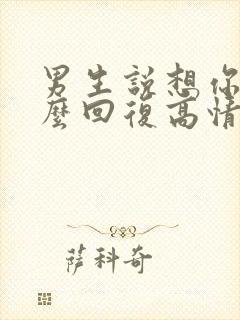 男生説想你
麼回復高情
薩科奇